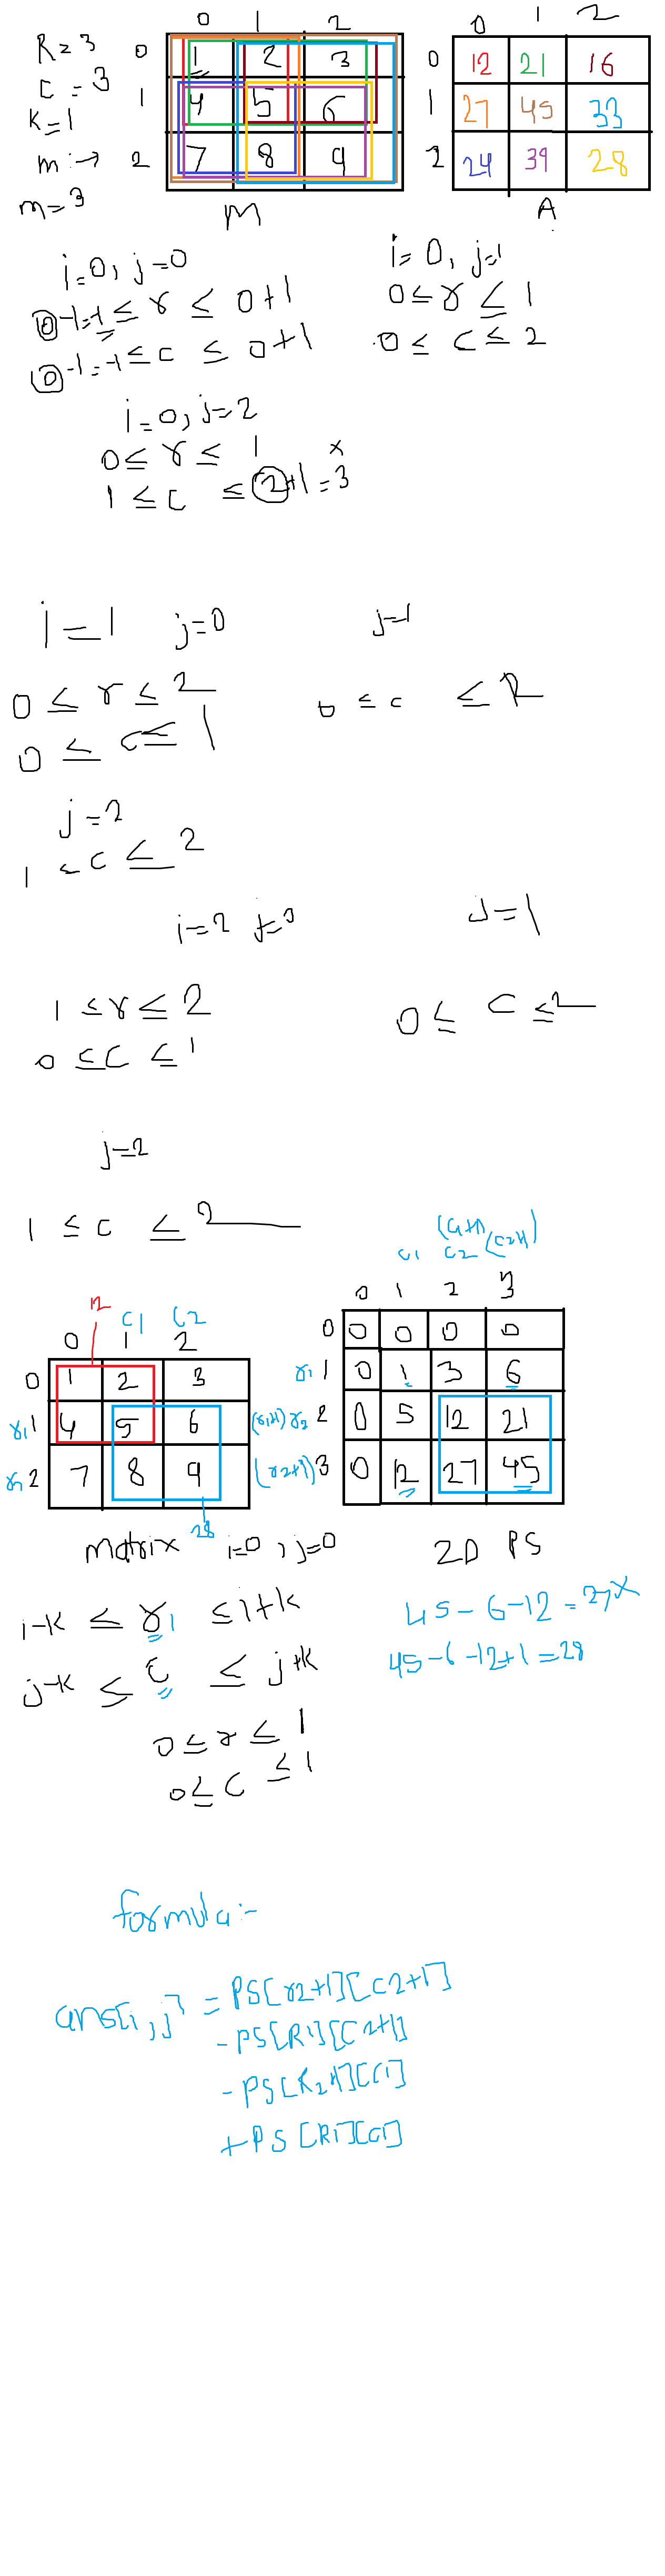 R = 3
C = 3
K = 1
m :→
m = 3
0 1 2
0 1 2 3
1 4 5 6
2 7 8 9
M
0 1 2
0 12 21 16
1 27 45 33
2 24 39 28
A
i=0, j=0
0-1=-1 ≤ r ≤ 0+1
0-1=-1 ≤ c ≤ 0+1
i=0, j=1
0 ≤ r ≤ 1
0 ≤ c ≤ 2
i=0, j=2
0 ≤ r ≤ 1
1 ≤ c ≤ 2+1 = 3 x
i=1 j=0
0 ≤ r ≤ 2
0 ≤ c ≤ 1
j=1
0 ≤ c ≤ 2
j=2
1 ≤ c ≤ 2
i=2 j=0
1 ≤ r ≤ 2
0 ≤ c ≤ 1
j=1
0 ≤ c ≤ 2
j=2
1 ≤ c ≤ 2
12
c1 c2
0 1 2
0 1 2 3
r1 1 4 5 6
r2 2 7 8 9
28
matrix i=0, j=0
(c1+1)
c1 c2 (c2+1)
0 1 2 3
0 0 0 0 0
r1 1 0 1 3 6
(r1+1) r2 2 0 5 12 21
(r2+1) 3 0 12 27 45
2D PS
45-6-12=27x
45-6-12+1=28
i-k ≤ r1 ≤ i+k
j-k ≤ c ≤ j+k
0 ≤ r ≤ 1
0 ≤ c ≤ 1
formula :-
ans[i,j] = PS[r2+1][c2+1]
-PS[R1][C2+1]
-PS[R2+1][C1]
+PS[R1][C1]